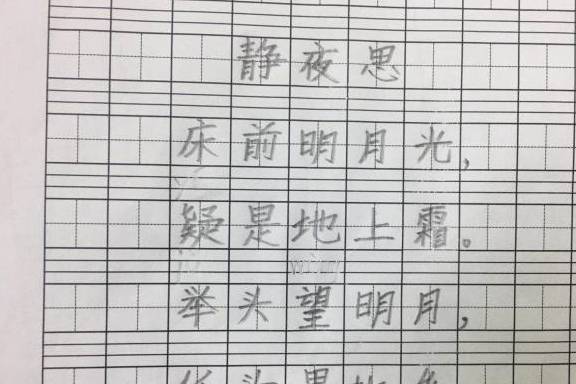 静夜思
床前明月光，
疑是地上霜。
举头望明月，